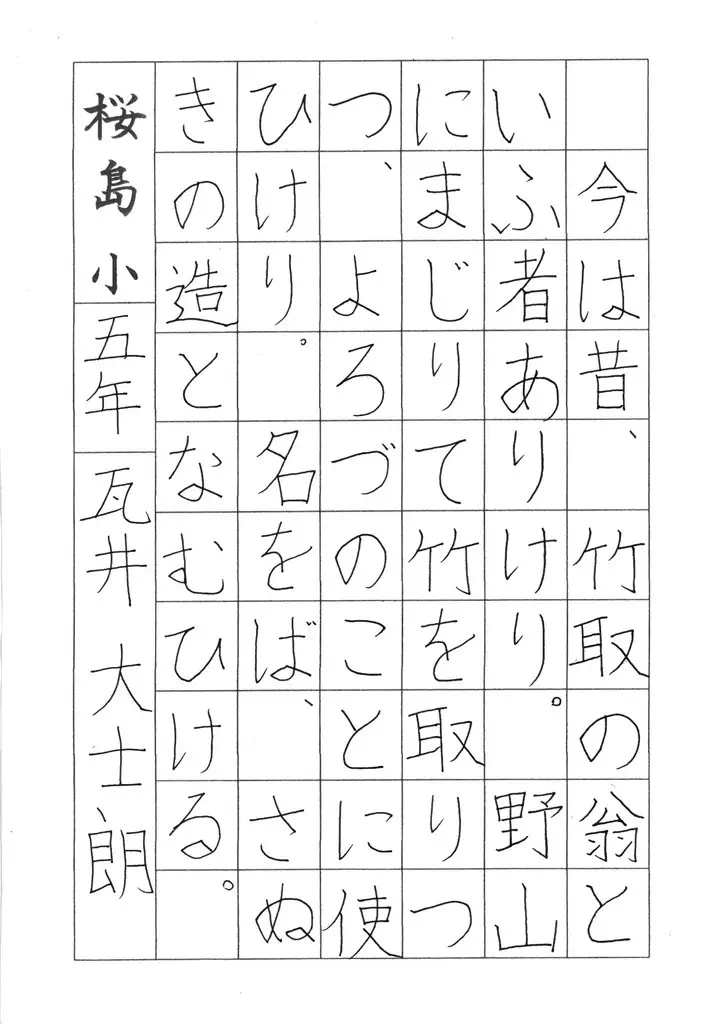 今は昔、竹取の翁と
いふ者ありけり。野山
にまじりて竹を取りつ
つ、よろづのことに使
ひけり。名をば、さぬ
きの造となむひける。
桜島小 五年 瓦井 大士朗